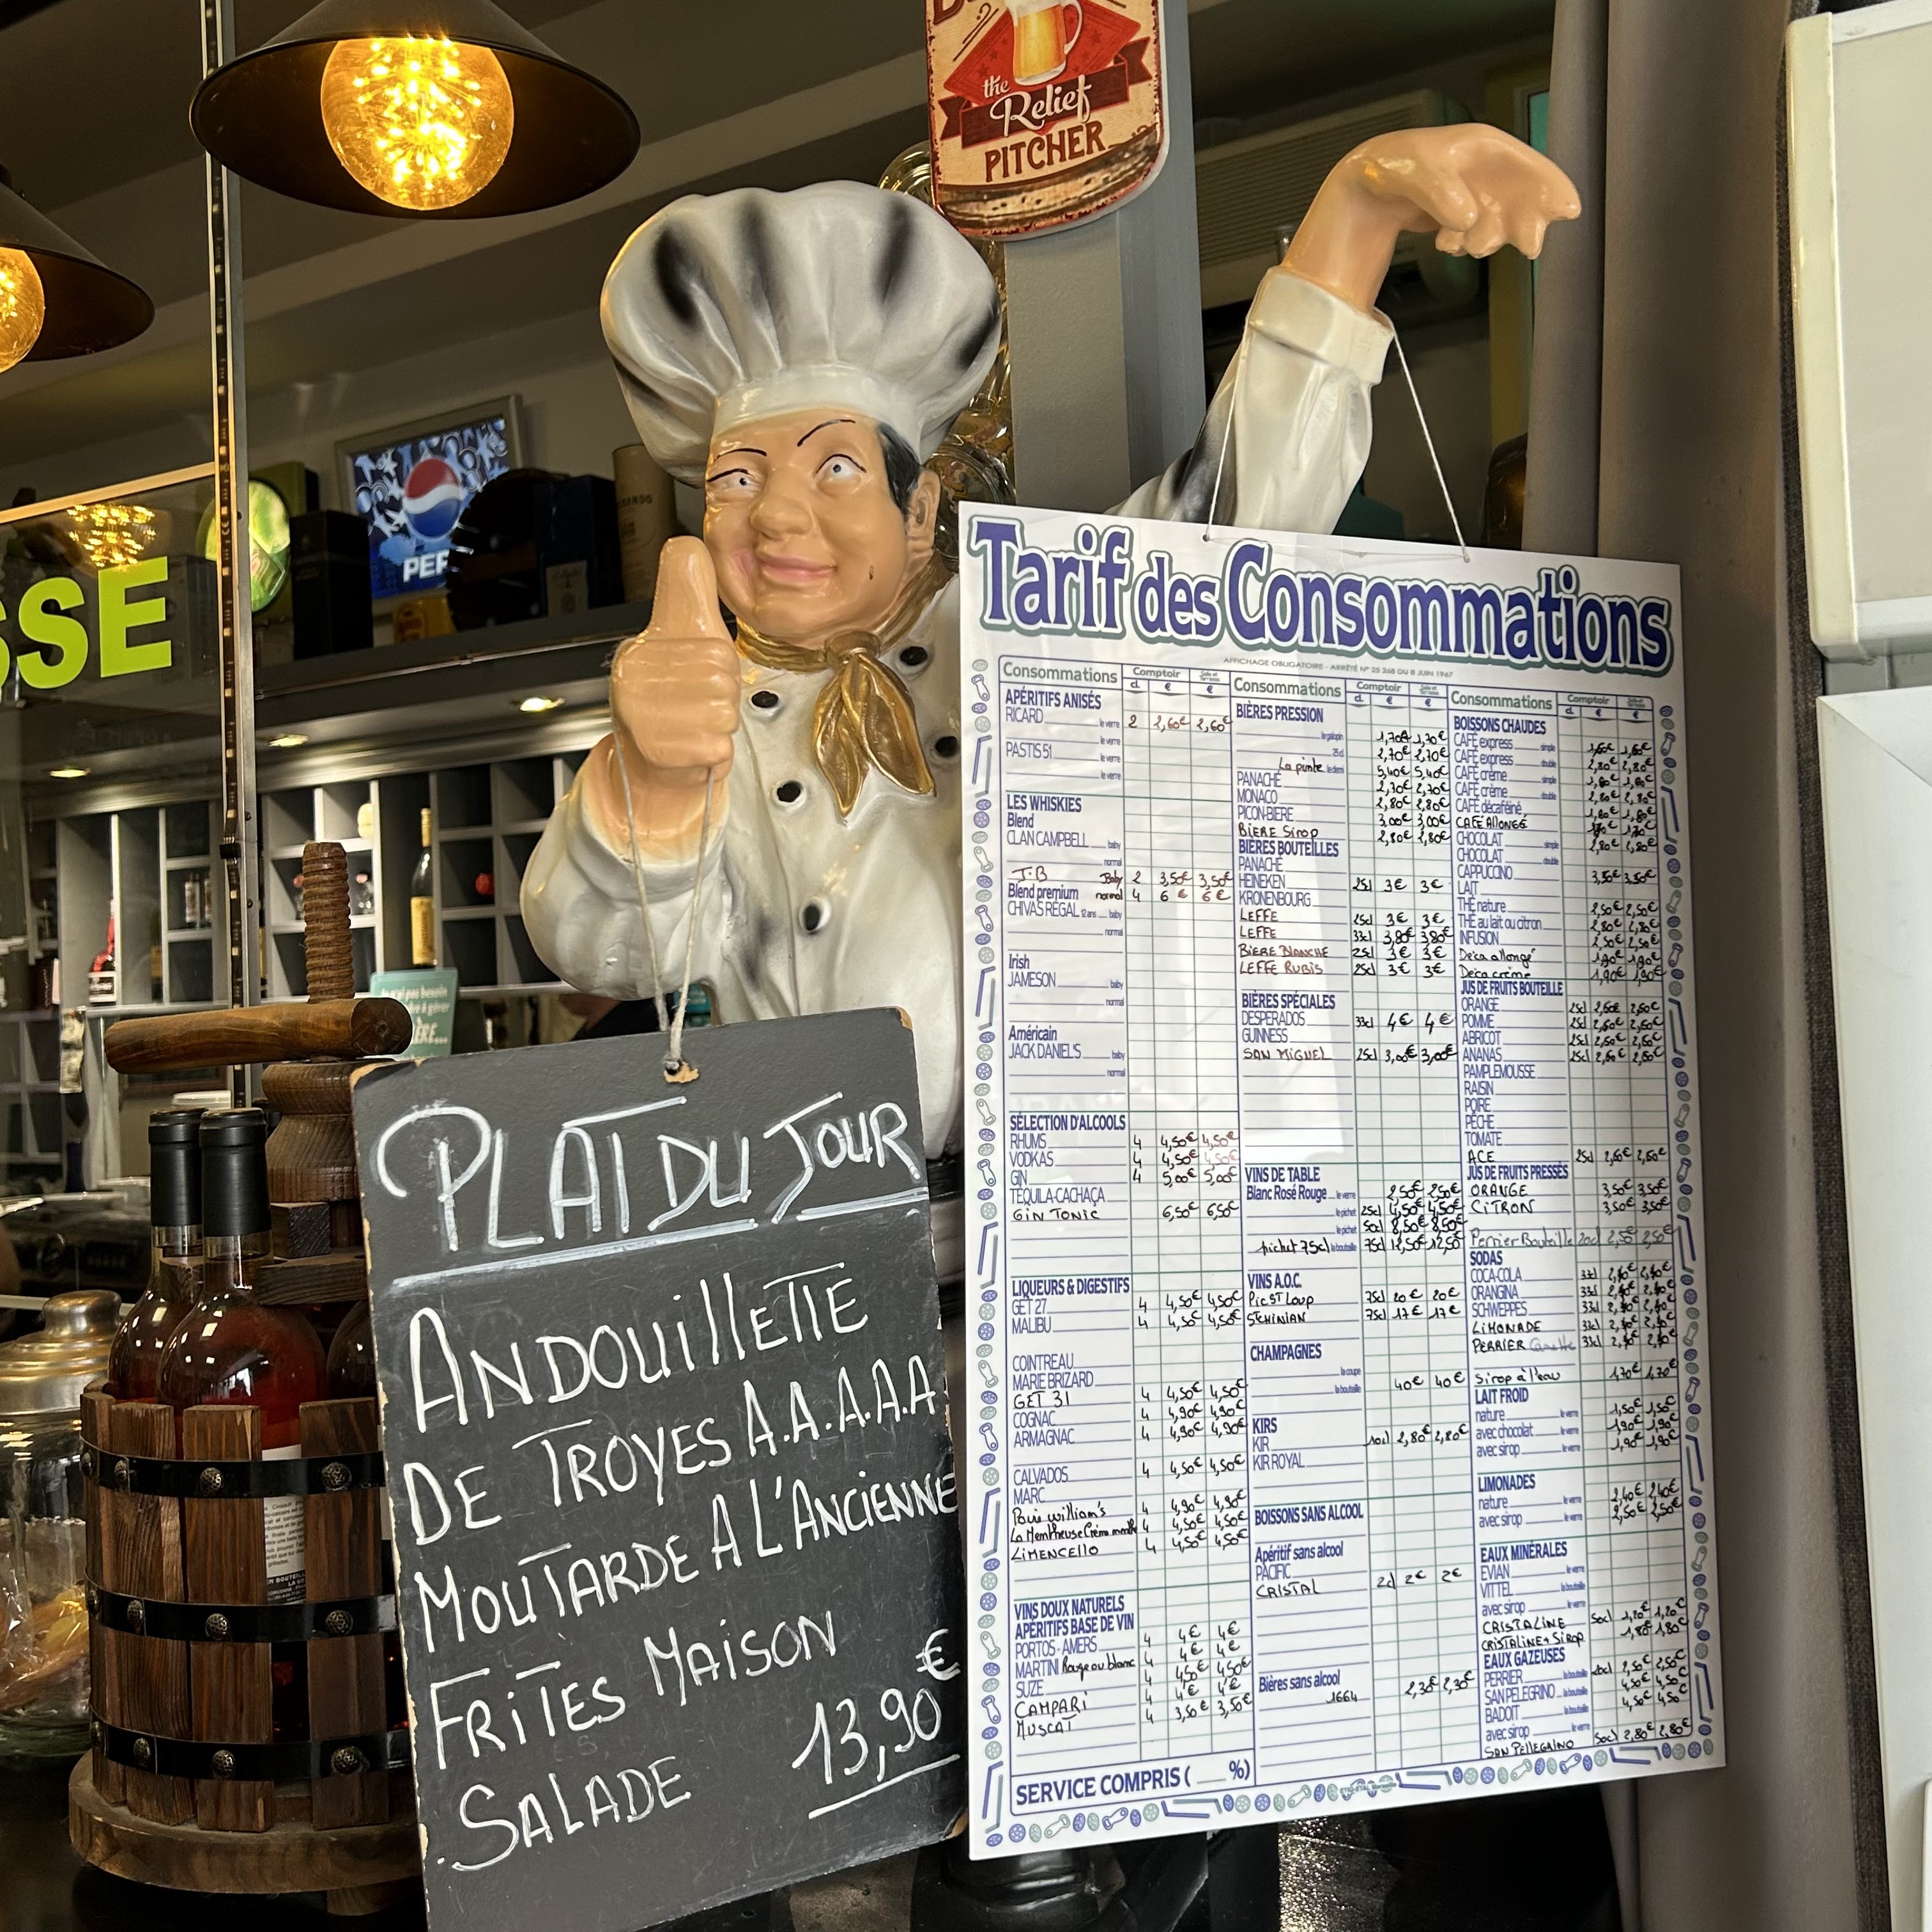 the
Relief
PITCHER
PEP
SSE
PLAT DU JOUR
ANDOUILLETTE
DE TROYES A.A.A.A.A
MOUTARDE A L'ANCIENNE
FRITES MAISON
SALADE 13,90 €
Tarif des Consommations
AFFICHAGE OBLIGATOIRE - ARRÊTÉ N° 25 268 DU 8 JUIN 1967
Consommations Comptoir d € €
APÉRITIFS ANISÉS
RICARD le verre 2 2,60€ 2,60€
le verre
PASTIS 51 le verre
le verre
LES WHISKIES
Blend
CLAN CAMPBELL baby
normal
J.B Baby 2 3,50€ 3,50€
Blend premium normal 4 6€ 6€
CHIVAS REGAL 12 ans baby
normal
Irish
JAMESON baby
normal
Américain
JACK DANIEL'S baby
normal
SÉLECTION D'ALCOOLS
RHUMS 4 4,50€ 4,50€
VODKAS 4 4,50€ 4,50€
GIN 4 5,00€ 5,00€
TEQUILA-CACHAÇA
GIN TONIC 6,50€ 6,50€
LIQUEURS & DIGESTIFS
GET 27 4 4,50€ 4,50€
MALIBU 4 4,50€ 4,50€
COINTREAU
MARIE BRIZARD
GET 31 4 4,50€ 4,50€
COGNAC 4 4,90€ 4,90€
ARMAGNAC 4 4,90€ 4,90€
CALVADOS 4 4,50€ 4,50€
MARC
Poir william's 4 4,90€ 4,90€
La Mentheuse Crème menthe 4 4,50€ 4,50€
LIMENCELLO 4 4,50€ 4,50€
VINS DOUX NATURELS
APÉRITIFS BASE DE VIN
PORTOS - AMERS 4 4€ 4€
MARTINI Rouge ou blanc 4 4€ 4€
SUZE 4 4,50€ 4,50€
CAMPARI 4 4€ 4€
MUSCAT 4 3,50€ 3,50€
SERVICE COMPRIS ( %)
Consommations Comptoir d € €
BIÈRES PRESSION
le galopin 1,70€ 1,70€
25cl 2,70€ 2,70€
La pinte le demi 5,40€ 5,40€
PANACHÉ 2,70€ 2,70€
MONACO 2,80€ 2,80€
PICON-BIERE 3,00€ 3,00€
BIERE Sirop 2,80€ 2,80€
BIÈRES BOUTEILLES
PANACHÉ
HEINEKEN 25cl 3€ 3€
KRONENBOURG
LEFFE 25cl 3€ 3€
LEFFE 33cl 3,80€ 3,80€
BIERE BLANCHE 25cl 3€ 3€
LEFFE RUBIS 25cl 3€ 3€
BIÈRES SPÉCIALES
DESPERADOS 33cl 4€ 4€
GUINNESS
SAN MIGUEL 25cl 3,00€ 3,00€
VINS DE TABLE
Blanc Rosé Rouge le verre 2,50€ 2,50€
le pichet 25cl 4,50€ 4,50€
le pichet 50cl 8,50€ 8,50€
pichet 75cl la bouteille 75cl 12,50€ 12,50
VINS A.O.C.
Pic ST Loup 75cl 20€ 20€
ST CHINIAN 75cl 17€ 17€
CHAMPAGNES
la coupe
la bouteille 40€ 40€
KIRS
KIR 10cl 2,80€ 2,80€
KIR ROYAL
BOISSONS SANS ALCOOL
Apéritif sans alcool
PACIFIC
CRISTAL 2cl 2€ 2€
Bières sans alcool
1664 2,30€ 2,30€
Consommations Comptoir d € €
BOISSONS CHAUDES
CAFÉ express simple 1,60€ 1,60€
CAFÉ express double 2,80€ 2,80€
CAFÉ crème simple 1,80€ 1,80€
CAFÉ crème double 2,80€ 2,80€
CAFÉ décaféiné 1,80€ 1,80€
CAFÉ ALLONGÉ 1,70€ 1,70€
CHOCOLAT simple 2,80€ 2,80€
CHOCOLAT double
CAPPUCCINO 3,50€ 3,50€
LAIT
THÉ nature 2,50€ 2,50€
THÉ au lait ou citron 2,80€ 2,80€
INFUSION 2,50€ 2,50€
Déca allongé 1,90€ 1,90€
Deca crème 1,90€ 1,90€
JUS DE FRUITS BOUTEILLE
ORANGE 25cl 2,60€ 2,60€
POMME 25cl 2,60€ 2,60€
ABRICOT 25cl 2,60€ 2,60€
ANANAS 25cl 2,60€ 2,60€
PAMPLEMOUSSE
RAISIN
POIRE
PÊCHE
TOMATE
ACE 25cl 2,60€ 2,60€
JUS DE FRUITS PRESSÉS
ORANGE 3,50€ 3,50€
CITRON 3,50€ 3,50€
Perrier Bouteille 20cl 2,50€ 2,50€
SODAS
COCA-COLA 33cl
ORANGINA 33cl
SCHWEPPES 33cl
LIMONADE 33cl
PERRIER Canette 33cl
Sirop à l'eau 1,70€ 1,70€
LAIT FROID
nature le verre 1,50€ 1,50€
avec chocolat le verre 1,90€ 1,90€
avec sirop le verre 1,90€ 1,90€
LIMONADES
nature le verre 2,40€ 2,40€
avec sirop le verre 2,50€ 2,50€
EAUX MINÉRALES
EVIAN le verre
VITTEL la bouteille
avec sirop le verre
CRISTALINE 50cl 1,20€ 1,20€
CRISTALINE + SIROP 1,80€ 1,80€
EAUX GAZEUSES
PERRIER la bouteille 20cl 2,50€ 2,50€
SAN PELEGRINO la bouteille 4,50€ 4,50€
BADOIT la bouteille 4,50€ 4,50€
avec sirop le verre
SAN PELLEGRINO 50cl 2,80€ 2,80€